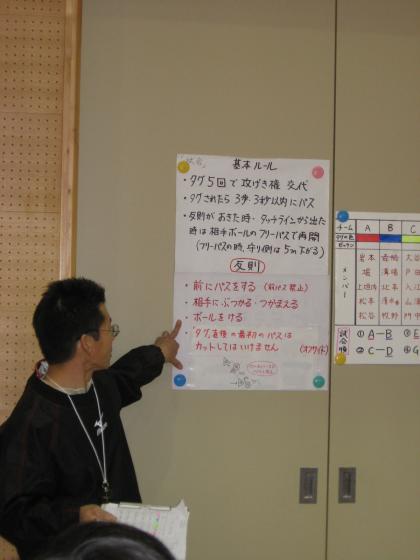 「試合」
基本ルール
・タグ5回で攻げき権交代
・タグされたら3歩・3秒以内にパス
・反則がおきた時・タッチラインから出た
時は相手ボールのフリーパスで再開
(フリーパスの時、守り側は5m下がる)
反則
・前にパスをする(前パス禁止)
・相手にぶつかる・つかまえる
・ボールをける
・タグ直後の最初のパスは
カットしてはいけません(オフサイド)
チーム A B C
タグの色
ゼッケン
メンバー
岩本 大谷
堀 溝場 戸田
上垣内 北本 入江
松本 山添
松谷 牧野 門中
試合順 ①A―B ③E
②C―D ④G